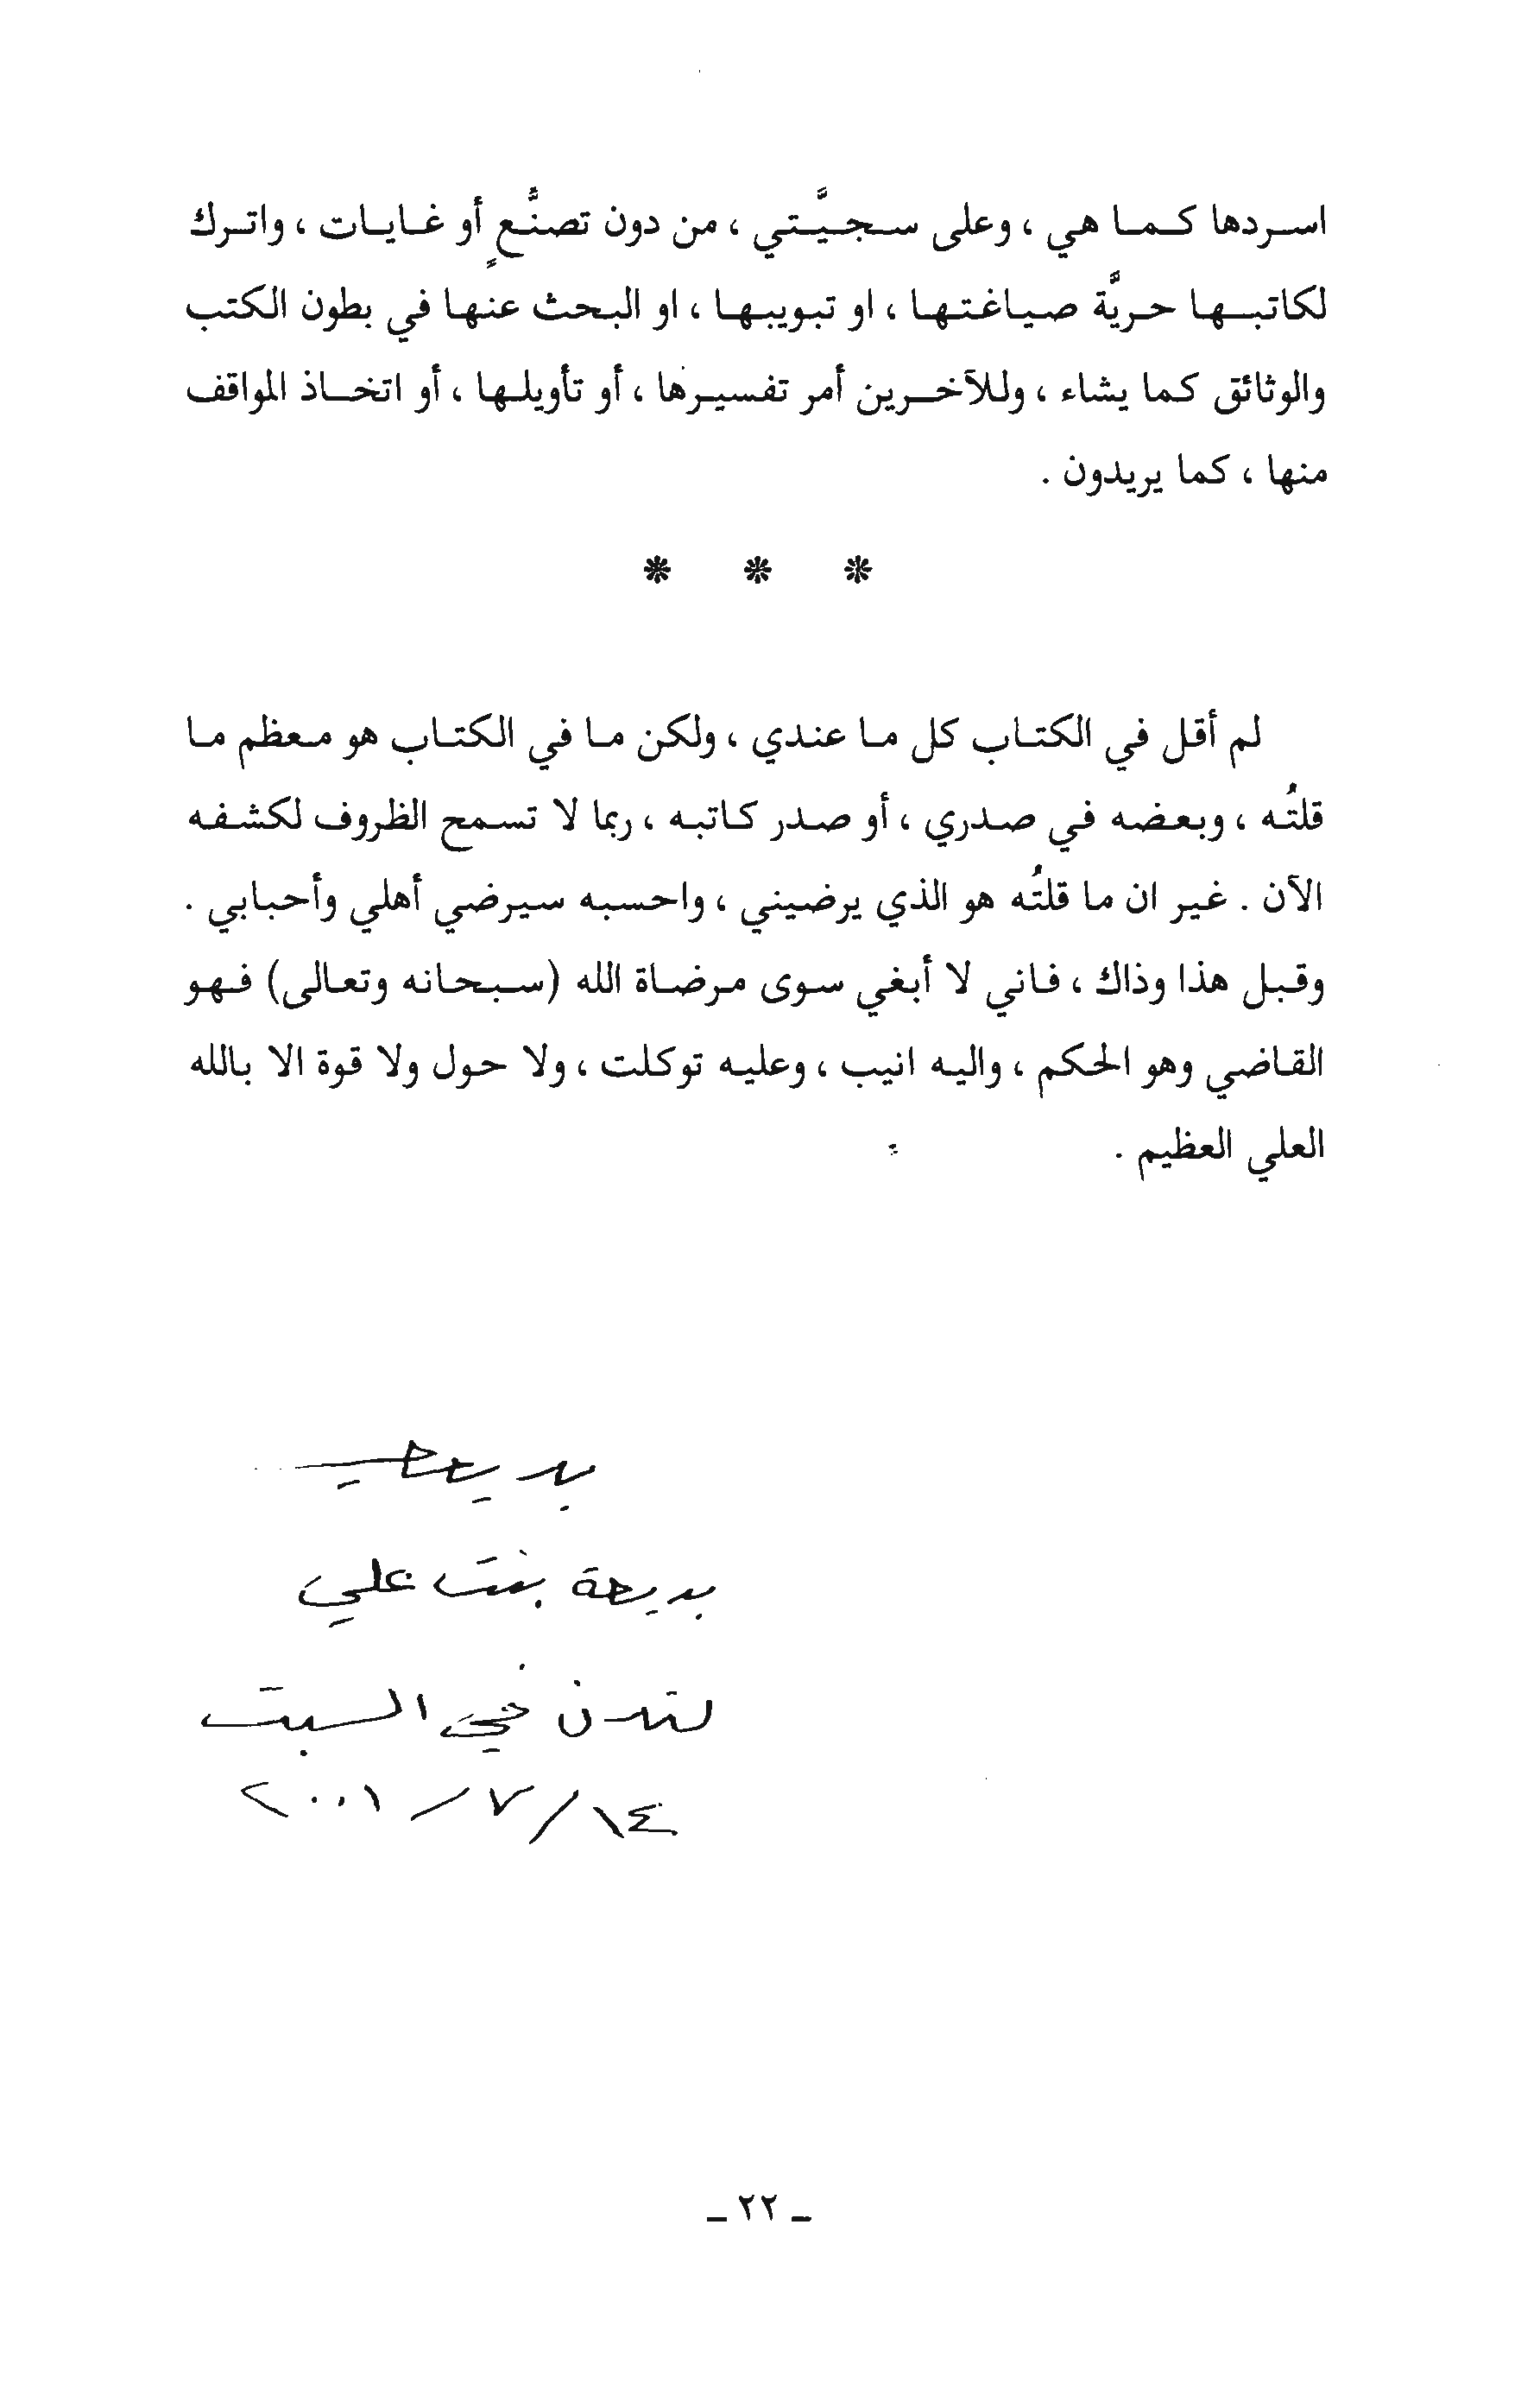 اسردها كما هي ، وعلى سجيَّتي ، من دون تصنُّعٍ أو غايات ، واترك
لكاتبها حريَّة صياغتها ، او تبويبها ، او البحث عنها في بطون الكتب
والوثائق كما يشاء ، وللآخرين أمر تفسيرها ، أو تأويلها ، أو اتخاذ المواقف
منها ، كما يريدون .
* * *
لم أقل في الكتاب كل ما عندي ، ولكن ما في الكتاب هو معظم ما
قلتُه ، وبعضه في صدري ، أو صدر كاتبه ، ربما لا تسمح الظروف لكشفه
الآن . غير ان ما قلتُه هو الذي يرضيني ، واحسبه سيرضي أهلي وأحبابي .
وقبل هذا وذاك ، فاني لا أبغي سوى مرضاة الله (سبحانه وتعالى) فهو
القاضي وهو الحكم ، واليه انيب ، وعليه توكلت ، ولا حول ولا قوة الا بالله
العلي العظيم .
بديعة بنت علي
لندن في السبت
١٤/ ٧/ ٢٠٠١
ـ ٢٢ ـ